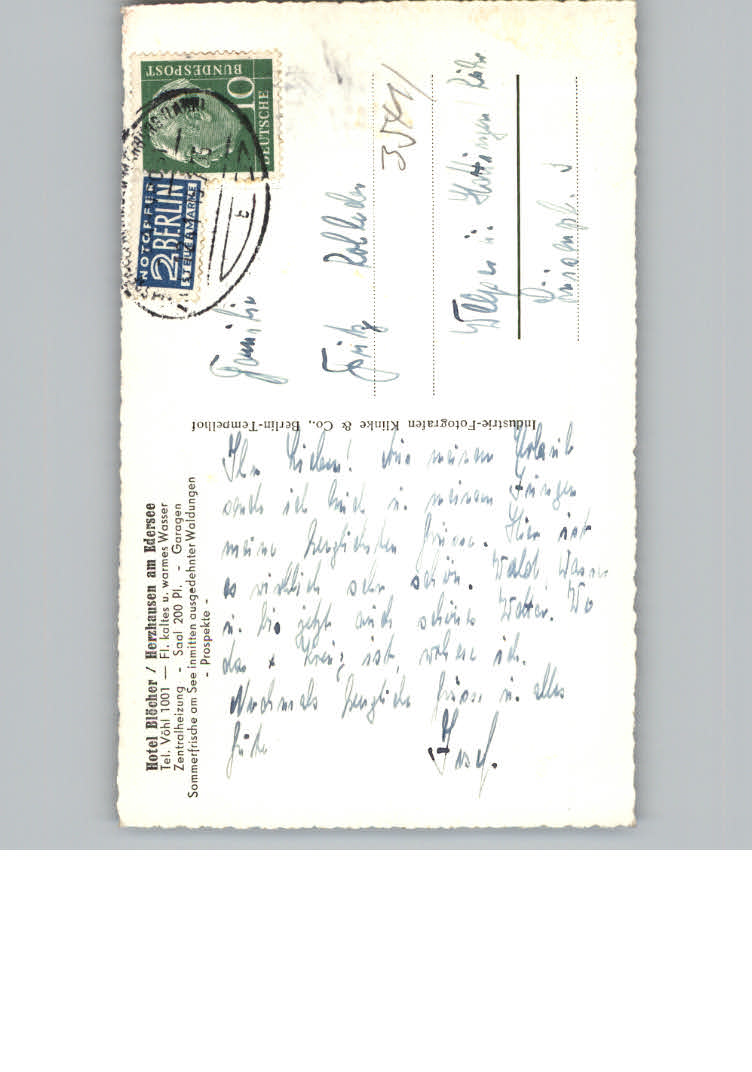 Hotel Blöcher / Herzhausen am Edersee
Tel. Vöhl 1001 — Fl. kaltes u. warmes Wasser
Zentralheizung - Saal 200 Pl. - Garagen
Sommerfrische am See inmitten ausgedehnter Waldungen
- Prospekte -
Ihr Lieben! Aus meinem Urlaub
sende ich Euch u. meinem Jungen
meine herzlichsten Grüsse. Hier ist
es wirklich sehr schön. Wald, Wasser
u. bis jetzt auch schönes Wetter. Wo
das x Kreuz ist, wohne ich.
Nochmals herzliche Grüsse u. alles
Gute
Josef.
Industrie-Fotografen Klinke & Co., Berlin-Tempelhof
DEUTSCHE
BUNDESPOST
10
NOTOPFER
2 BERLIN
STEUERMARKE
Familie
Fritz
Welper ü. Hattingen / Ruhr